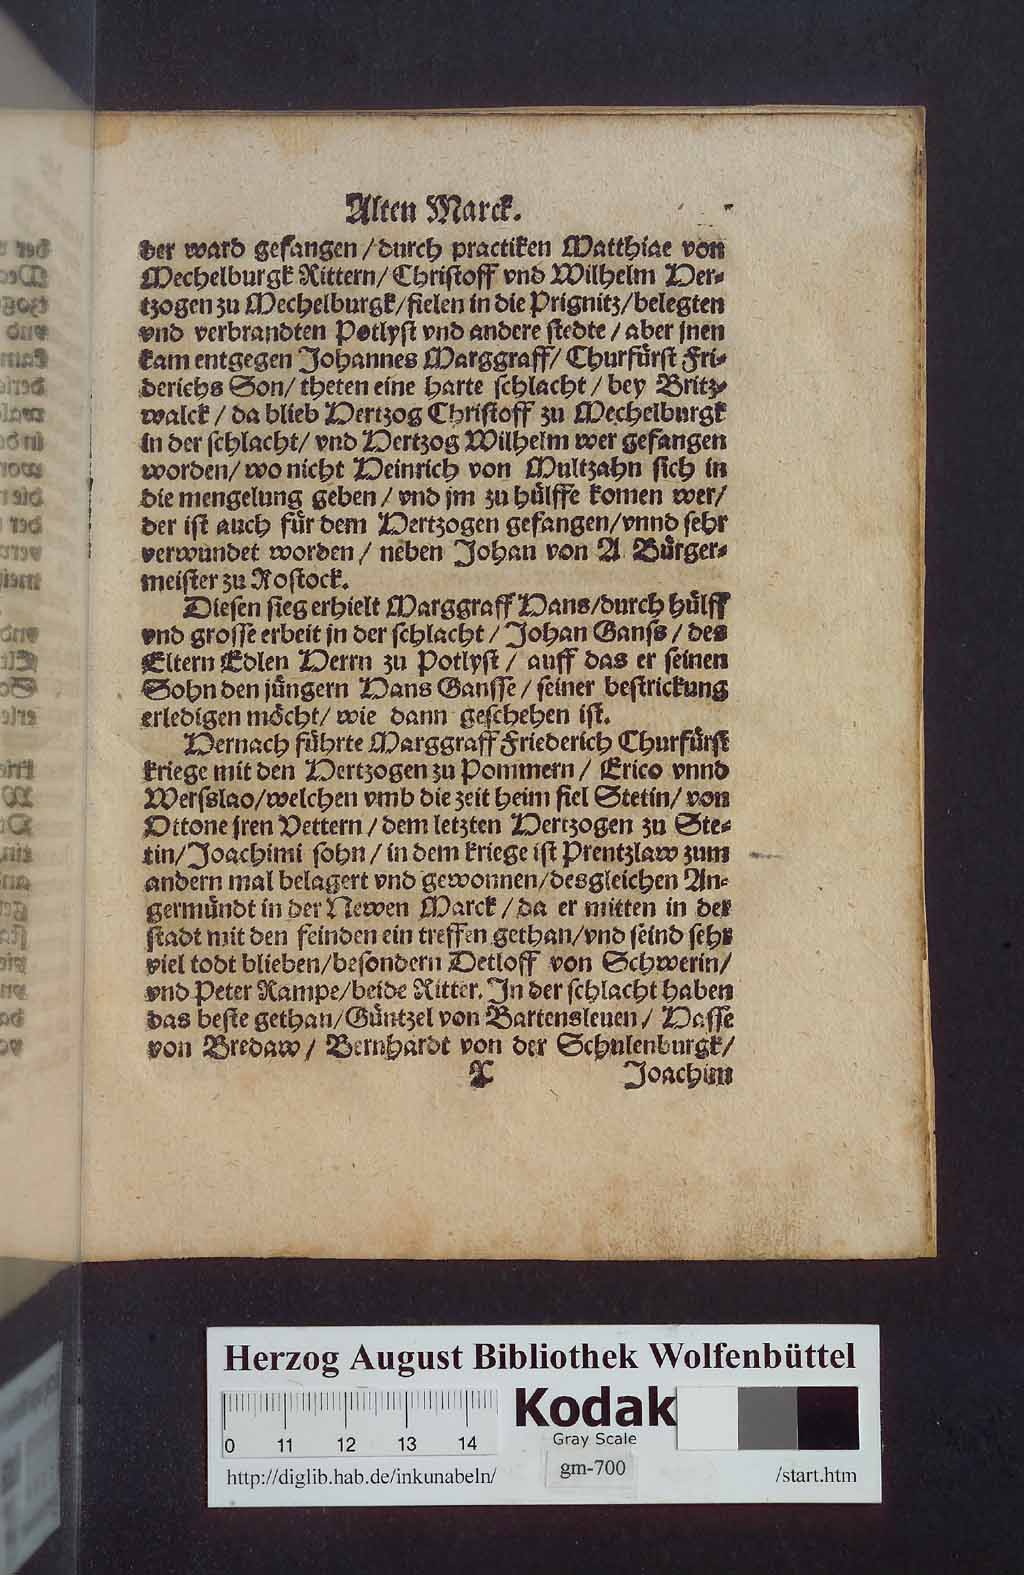 Alten Marck.
der ward gefangen / durch practiken Matthiae von
Mechelburgk Rittern / Christoff vnd Wilhelm Her-
tzogen zu Mechelburgk / fielen in die Prignitz / belegten
vnd verbrandten Potlyst vnd andere stedte / aber jnen
kam entgegen Johannes Marggraff / Churfürst Fri-
derichs Son / theten eine harte schlacht / bey Britz-
walck / da blieb Hertzog Christoff zu Mechelburgk
in der schlacht / vnd Hertzog Wilhelm wer gefangen
worden / wo nicht Heinrich von Multzahn sich in
die mengelung geben / vnd jm zu hülffe komen wer /
der ist auch für dem Hertzogen gefangen / vnnd sehr
verwundet worden / neben Johan von A Bürger-
meister zu Rostock.
Diesen sieg erhielt Marggraff Hans / durch hülff
vnd grosse erbeit in der schlacht / Johan Ganss / des
Eltern Edlen Herrn zu Potlyst / auff das er seinen
Sohn den jüngern Hans Gansse / seiner bestrickung
erledigen möcht / wie dann geschehen ist.
Hernach führte Marggraff Friederich Churfürst
kriege mit den Hertzogen zu Pommern / Erico vnnd
Werslao / welchen vmb die zeit heim fiel Stetin / von
Ottone jren Vettern / dem letzten Hertzogen zu Ste-
tin / Joachimi sohn / in dem kriege ist Prentzlaw zum
andern mal belagert vnd gewonnen / desgleichen An-
germündt in der Newen Marck / da er mitten in der
stadt mit den feinden ein treffen gethan / vnd seind sehr
viel todt blieben / besondern Detloff von Schwerin /
vnd Peter Rampe / beide Ritter. In der schlacht haben
das beste gethan / Güntzel von Bartensleuen / Hasse
von Bredaw / Bernhardt von der Schulenburgk /
X Joachim
Herzog August Bibliothek Wolfenbüttel
Kodak
Gray Scale
0 11 12 13 14
http://diglib.hab.de/inkunabeln/ gm-700 /start.htm